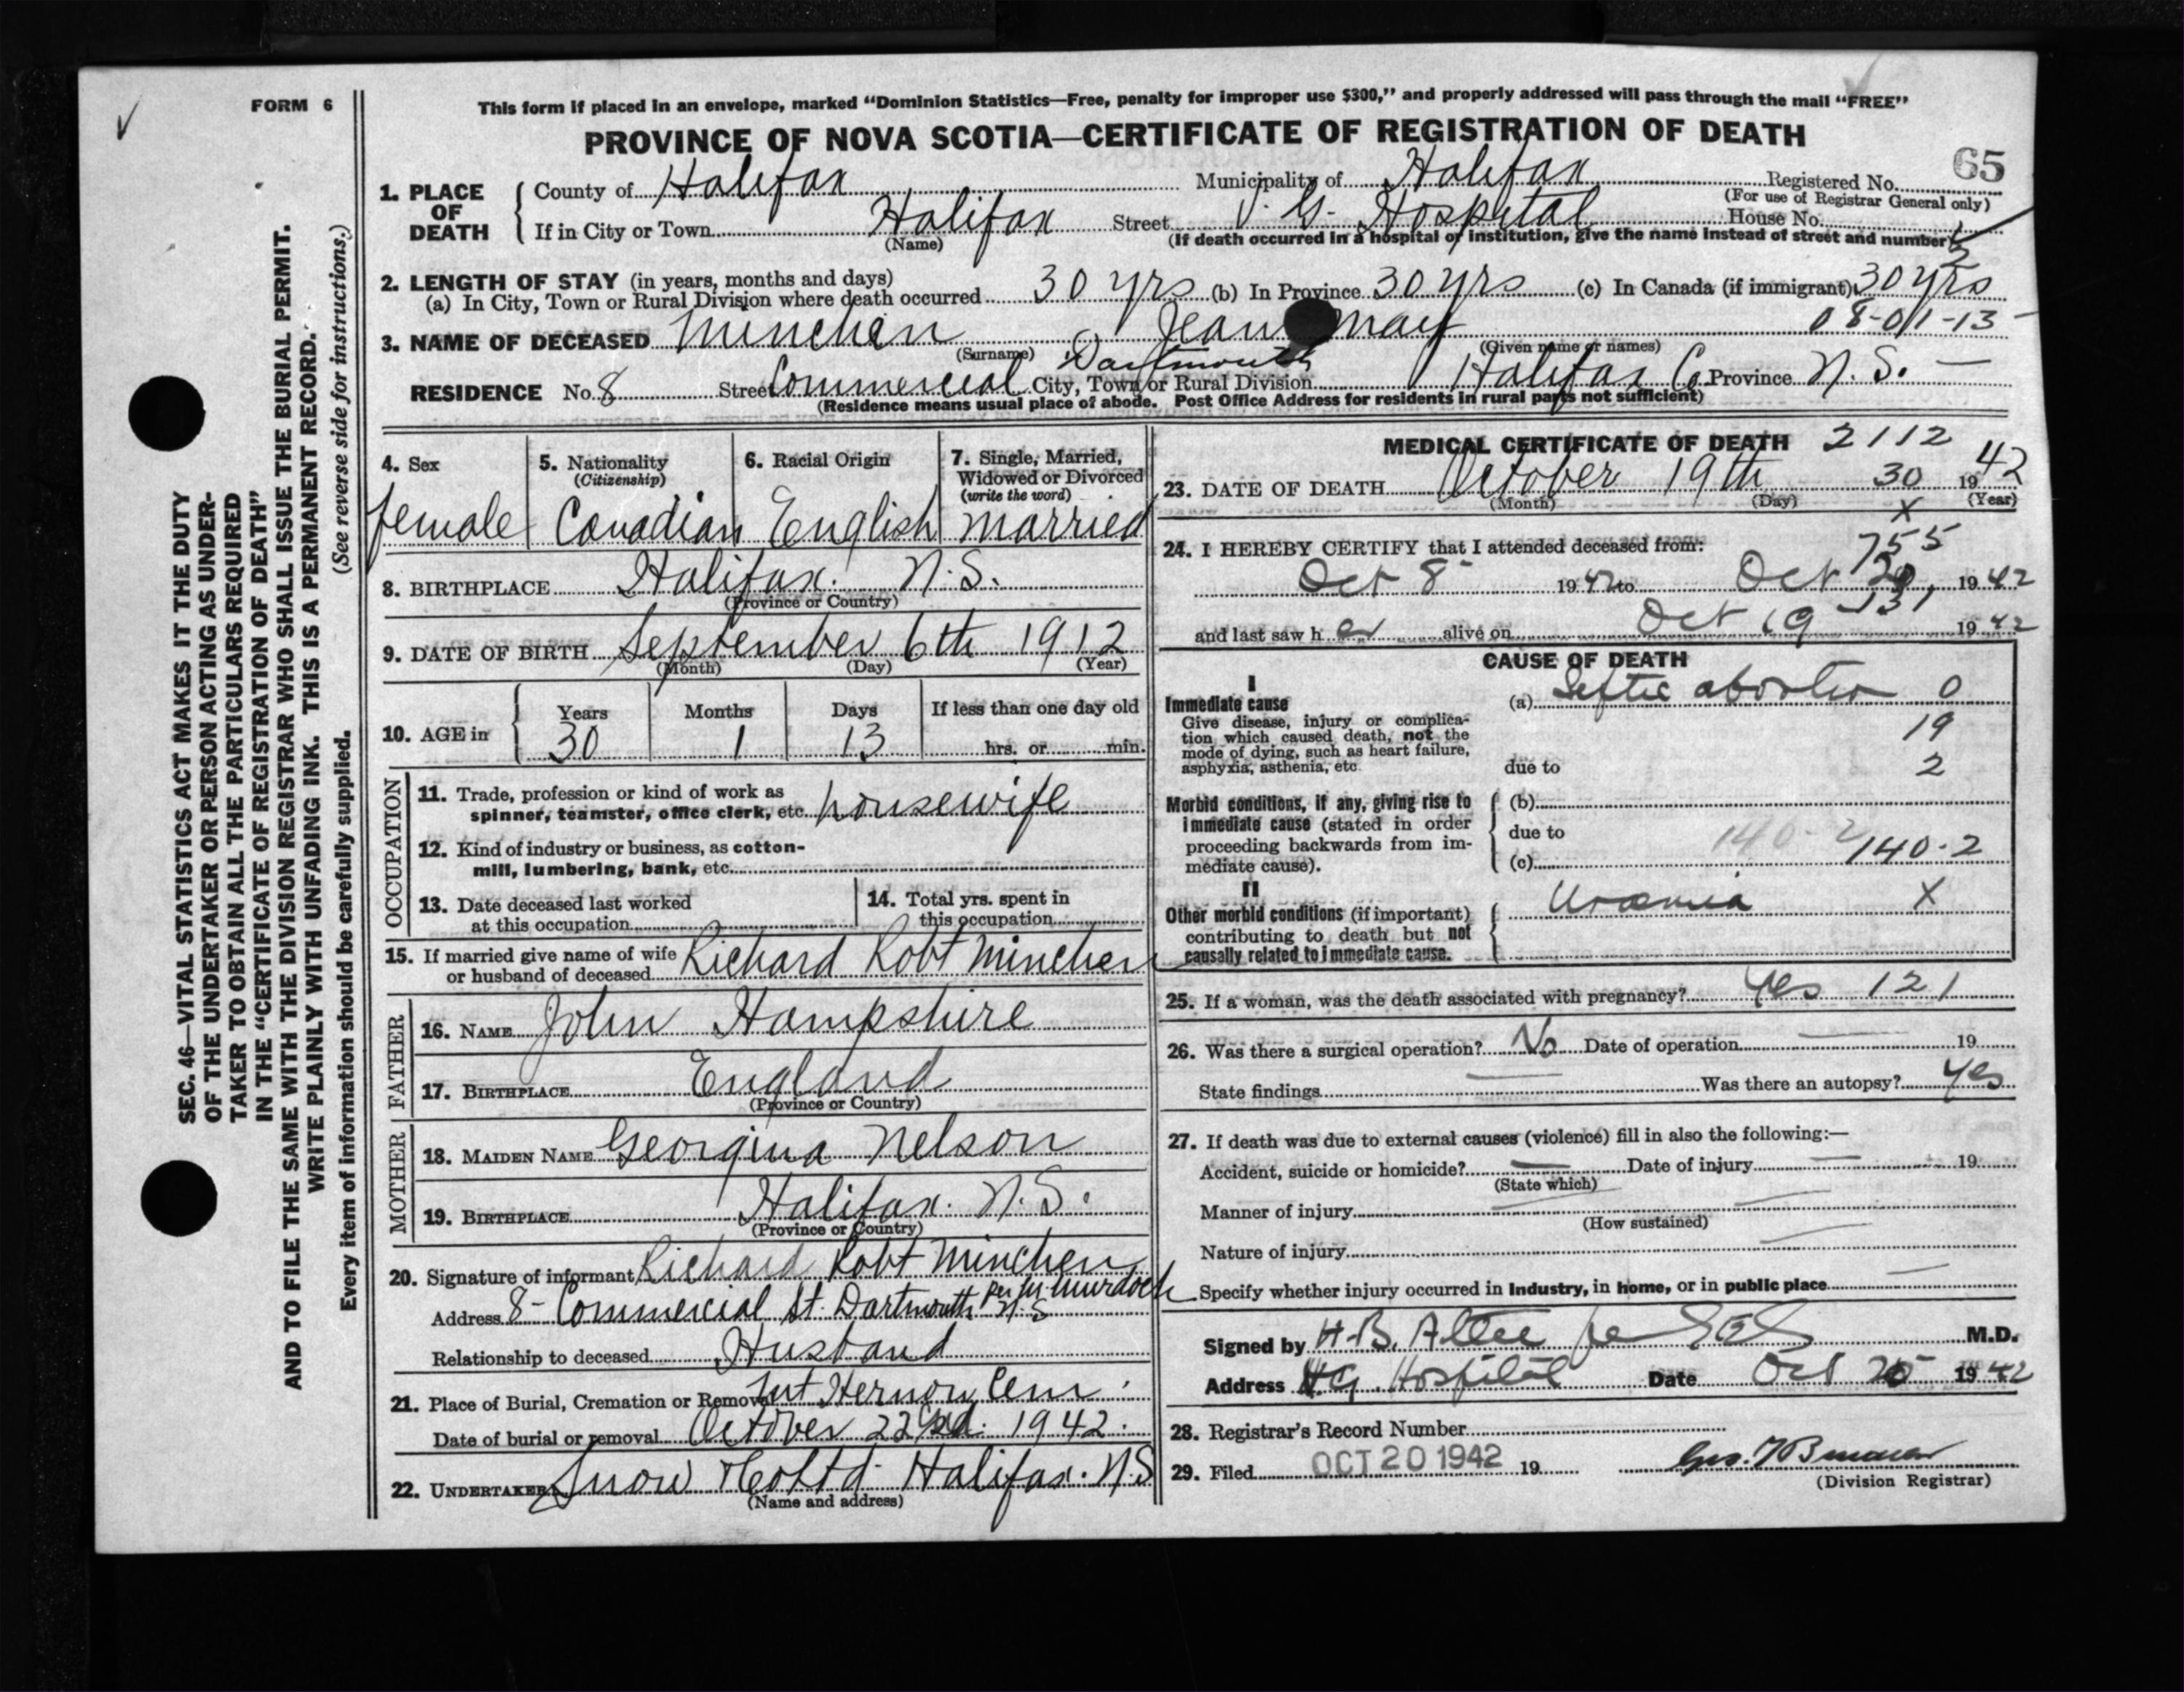 FORM 6
This form if placed in an envelope, marked "Dominion Statistics—Free, penalty for improper use $300," and properly addressed will pass through the mail "FREE"
PROVINCE OF NOVA SCOTIA—CERTIFICATE OF REGISTRATION OF DEATH
65
1. PLACE OF DEATH County of Halifax Municipality of Halifax Registered No.
(For use of Registrar General only)
If in City or Town Halifax Street V. G. Hospital House No.
(Name) (If death occurred in a hospital or institution, give the name instead of street and number)
2. LENGTH OF STAY (in years, months and days)
(a) In City, Town or Rural Division where death occurred 30 yrs (b) In Province 30 yrs (c) In Canada (if immigrant) 30 yrs
3. NAME OF DECEASED Minchen Jean May 08-01-13
(Surname) (Given name or names)
Dartmouth
RESIDENCE No. 8 Street Commercial City, Town or Rural Division Halifax Co. Province N. S.
(Residence means usual place of abode. Post Office Address for residents in rural parts not sufficient)
SEC. 46—VITAL STATISTICS ACT MAKES IT THE DUTY
OF THE UNDERTAKER OR PERSON ACTING AS UNDER-
TAKER TO OBTAIN ALL THE PARTICULARS REQUIRED
IN THE "CERTIFICATE OF REGISTRATION OF DEATH"
AND TO FILE THE SAME WITH THE DIVISION REGISTRAR WHO SHALL ISSUE THE BURIAL PERMIT.
WRITE PLAINLY WITH UNFADING INK. THIS IS A PERMANENT RECORD.
Every item of information should be carefully supplied. (See reverse side for instructions.)
4. Sex 5. Nationality 6. Racial Origin 7. Single, Married,
(Citizenship) Widowed or Divorced
(write the word)
female Canadian English married
8. BIRTHPLACE Halifax. N.S.
(Province or Country)
9. DATE OF BIRTH September 6th 1912
(Month) (Day) (Year)
10. AGE in Years Months Days If less than one day old
30 1 13 hrs. or min.
OCCUPATION
11. Trade, profession or kind of work as
spinner, teamster, office clerk, etc. housewife
12. Kind of industry or business, as cotton-
mill, lumbering, bank, etc.
13. Date deceased last worked 14. Total yrs. spent in
at this occupation this occupation
15. If married give name of wife
or husband of deceased Richard Robt Minchen
FATHER
16. NAME John Hampshire
17. BIRTHPLACE England
(Province or Country)
MOTHER
18. MAIDEN NAME Georgina Nelson
19. BIRTHPLACE Halifax. N.S.
(Province or Country)
20. Signature of informant Richard Robt Minchen
per Murdoch
Address 8 - Commercial St. Dartmouth N.S
Relationship to deceased Husband
21. Place of Burial, Cremation or Removal Mt Hermon Cem
Date of burial or removal October 22nd. 1942.
22. UNDERTAKER Snow & Co Ltd - Halifax. N.S
(Name and address)
MEDICAL CERTIFICATE OF DEATH 2112
23. DATE OF DEATH October 19th 30 1942
(Month) (Day) (Year)
X
24. I HEREBY CERTIFY that I attended deceased from: 755
Oct 8 1942 to Oct 1942
131
and last saw her alive on Oct 19 1942
CAUSE OF DEATH
I
Immediate cause (a) Septic abortion 0
Give disease, injury or complica- 19
tion which caused death, not the
mode of dying, such as heart failure,
asphyxia, asthenia, etc. due to 2
Morbid conditions, if any, giving rise to (b)
immediate cause (stated in order due to 140-2
proceeding backwards from im- (c) 140-2
mediate cause).
II
Other morbid conditions (if important) Uraemia X
contributing to death but not
causally related to immediate cause.
25. If a woman, was the death associated with pregnancy? Yes 121
26. Was there a surgical operation? No Date of operation — 19
State findings — Was there an autopsy? Yes
27. If death was due to external causes (violence) fill in also the following:—
Accident, suicide or homicide? — Date of injury — 19
(State which)
Manner of injury
(How sustained)
Nature of injury
Specify whether injury occurred in industry, in home, or in public place
Signed by H.B. Atlee M.D.
Address V.G. Hospital Date Oct 20 1942
28. Registrar's Record Number
29. Filed OCT 20 1942 19
(Division Registrar)